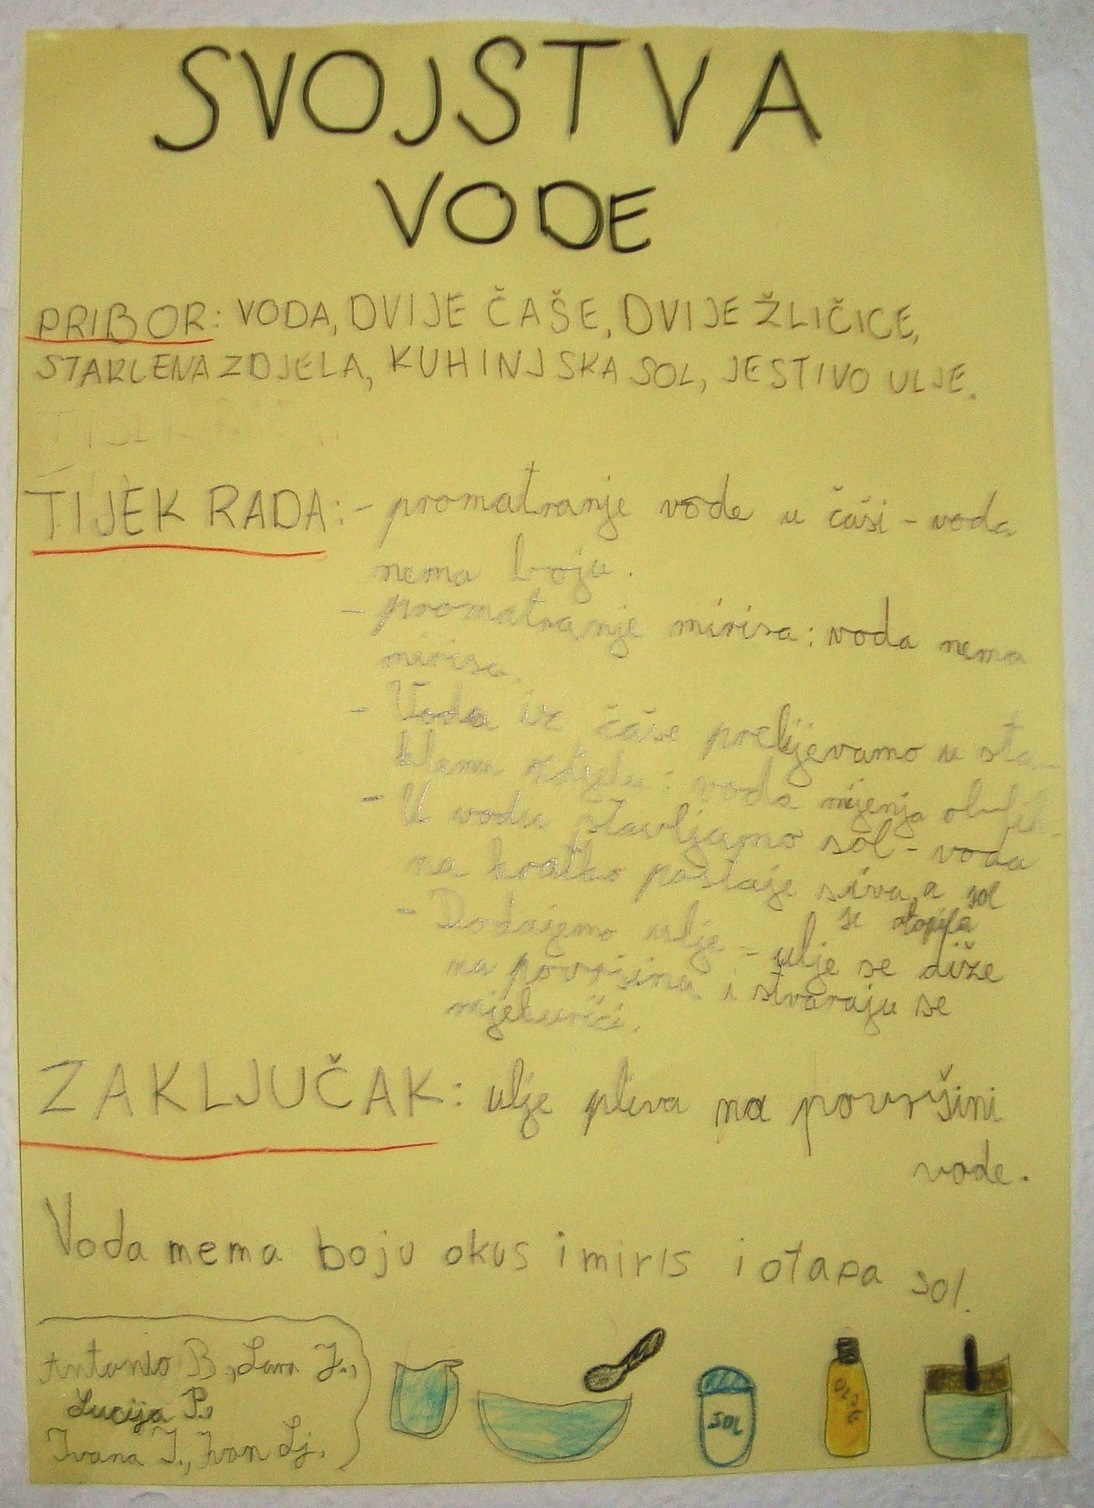 SVOJSTVA
VODE
PRIBOR: VODA, DVIJE ČAŠE, DVIJE ŽLIČICE,
STAKLENA ZDJELA, KUHINJSKA SOL, JESTIVO ULJE.
TIJEK RADA: - promatranje vode u čaši - voda
nema boju.
- promatranje mirisa: voda nema
mirisa.
- Voda iz čaše prelijevamo u sta-
klenu zdjelu: voda mijenja oblik.
- U vodu stavljamo sol - voda
na kratko postaje siva, a sol
se otopila
- Dodajemo ulje = ulje se diže
na površinu i stvaraju se
mjehurići.
ZAKLJUČAK: ulje pliva na površini
vode.
Voda nema boju okus i miris i otapa sol.
Antonio B., Lara J.,
Lucija P.,
Ivana J., Ivan Lj.
SOL
ULJE